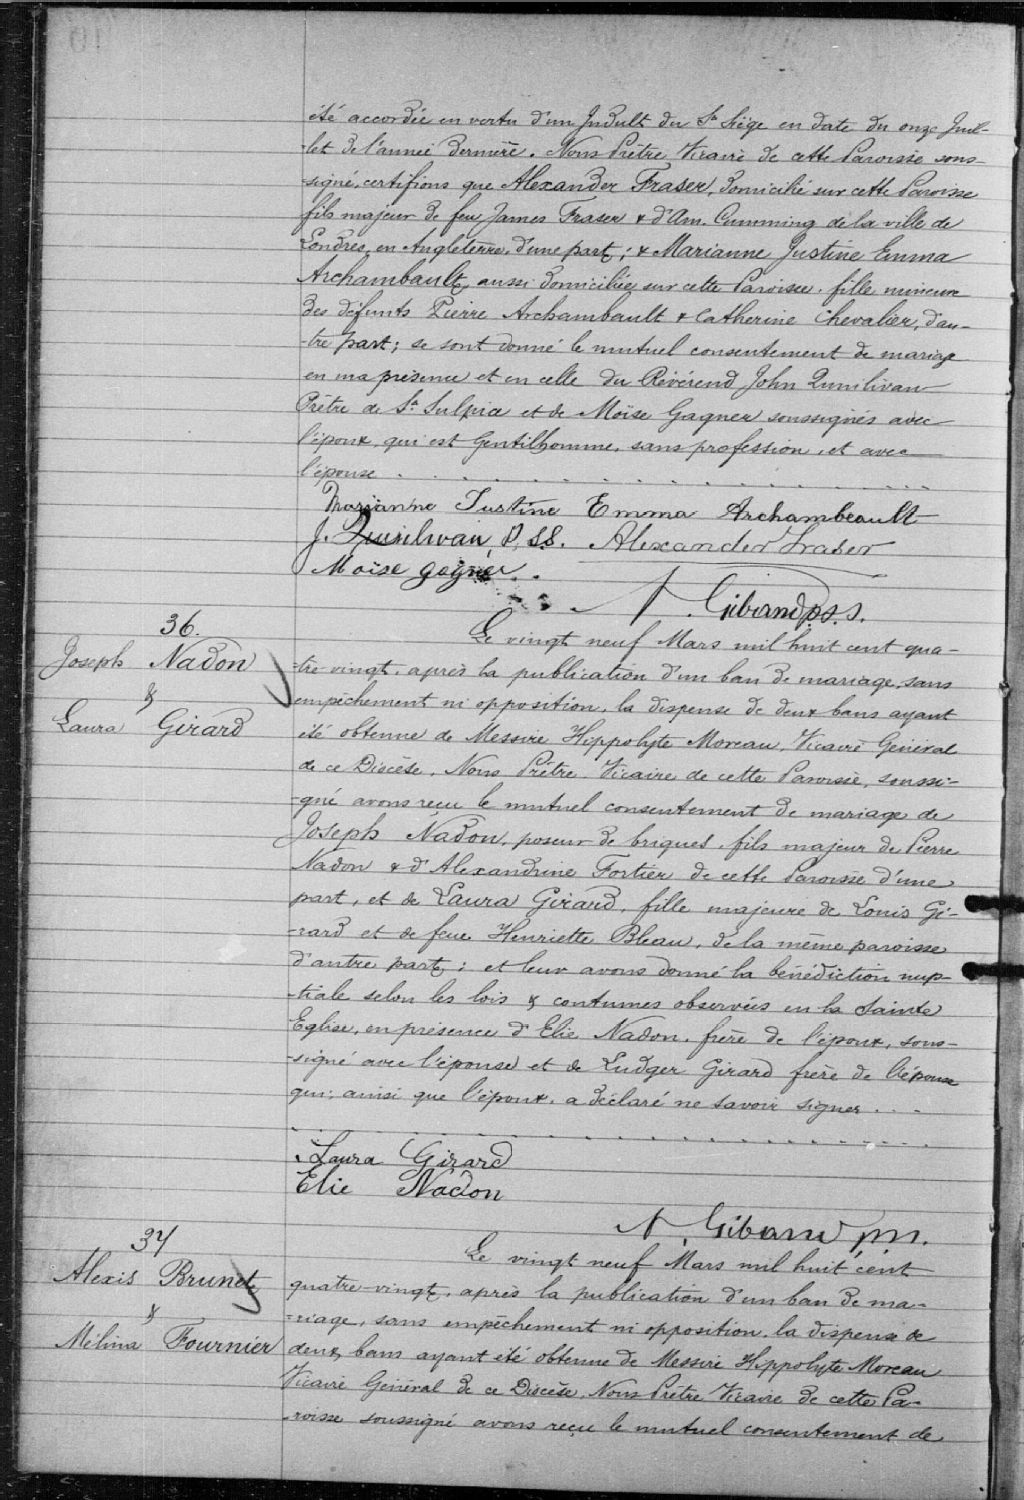 été accordée en vertu d'un Indult du St Siège en date du onze Juil-
-let de l'année dernière. Nous Prêtre Vicaire de cette Paroisse sous-
-signé, certifions que Alexander Fraser, domicilié sur cette Paroisse
fils majeur de feu James Fraser & d'Am. Cumming de la ville de
Londres, en Angleterre, d'une part; & Marianne Justine Emma
Archambault, aussi domiciliée sur cette Paroisse, fille mineure
des défunts Pierre Archambault & Catherine Chevalier, d'au-
-tre part; se sont donné le mutuel consentement de mariage
en ma présence et en celle du Révérend John Quinlivan
Prêtre de St Sulpice et de Moïse Gagner soussignés avec
l'époux, qui est Gentilhomme, sans profession, et avec
l'épouse.
Marianne Justine Emma Archambeault
J. Quinlivan, P.S.S. Alexander Fraser
Moise gagner.
Giband p.s.s.
36.
Joseph Nadon
&
Laura Girard
Le vingt neuf Mars mil huit cent qua-
-tre-vingt, après la publication d'un ban de mariage, sans
empêchement ni opposition, la dispense de deux bans ayant
été obtenue de Messire Hippolyte Moreau, Vicaire Général
de ce Diocèse, Nous Prêtre Vicaire de cette Paroisse, soussi-
-gné avons reçu le mutuel consentement de mariage de
Joseph Nadon, poseur de briques, fils majeur de Pierre
Nadon & d'Alexandrine Fortier de cette Paroisse d'une
part, et de Laura Girard, fille majeure de Louis Gi-
-rard et de feue Henriette Bleau, de la même paroisse
d'autre part; et leur avons donné la bénédiction nup-
-tiale selon les lois & coutumes observées en la Sainte
Eglise, en présence d'Elie Nadon, frère de l'époux, sous-
-signé avec l'épouse et de Ludger Girard frère de l'épouse
qui, ainsi que l'époux, a déclaré ne savoir signer....
Laura Girard
Elie Nadon
Giband
37
Alexis Brunet
&
Mélina Fournier
Le vingt neuf Mars mil huit cent
quatre-vingt, après la publication d'un ban de ma-
-riage, sans empêchement ni opposition, la dispense de
deux bans ayant été obtenue de Messire Hippolyte Moreau
Vicaire Général de ce Diocèse, Nous Prêtre Vicaire de cette Pa-
-roisse soussigné avons reçu le mutuel consentement de